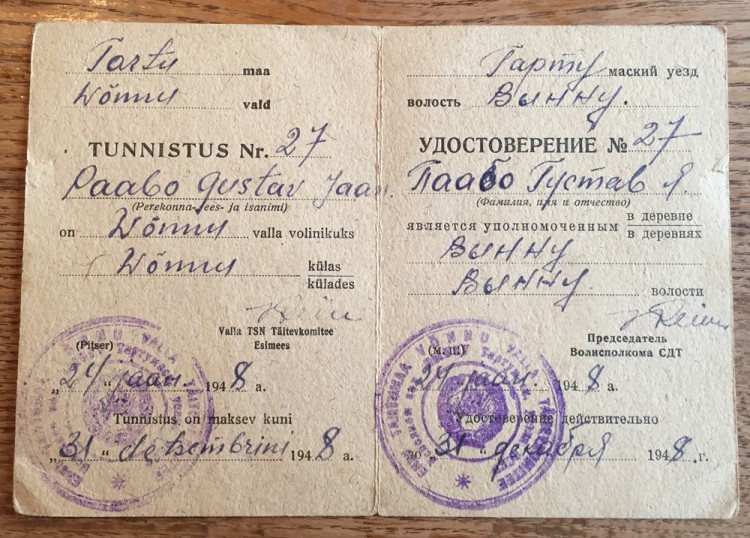 Tartu maa
Võnnu vald
TUNNISTUS Nr. 27
Paabo Gustav Jaan
(Perekonna-, ees- ja isanimi)
on Võnnu valla volinikuks
Võnnu külas
külades
Valla TSN Täitevkomitee
Esimees
(Pitser)
"24" jaan. 1948 a.
Tunnistus on maksev kuni
"31" detsembrini 1948 a.
Тартумаский уезд
волость Вынну.
УДОСТОВЕРЕНИЕ № 27
Паабо Густав Я.
(Фамилия, имя и отчество)
является уполномоченным в деревне
в деревнях
Вынну
Вынну. волости
Председатель
Волисполкома СДТ
(М. П.)
"24" jaan. 1948 г.
Удостоверение действительно
до "31" декабря 1948 г.